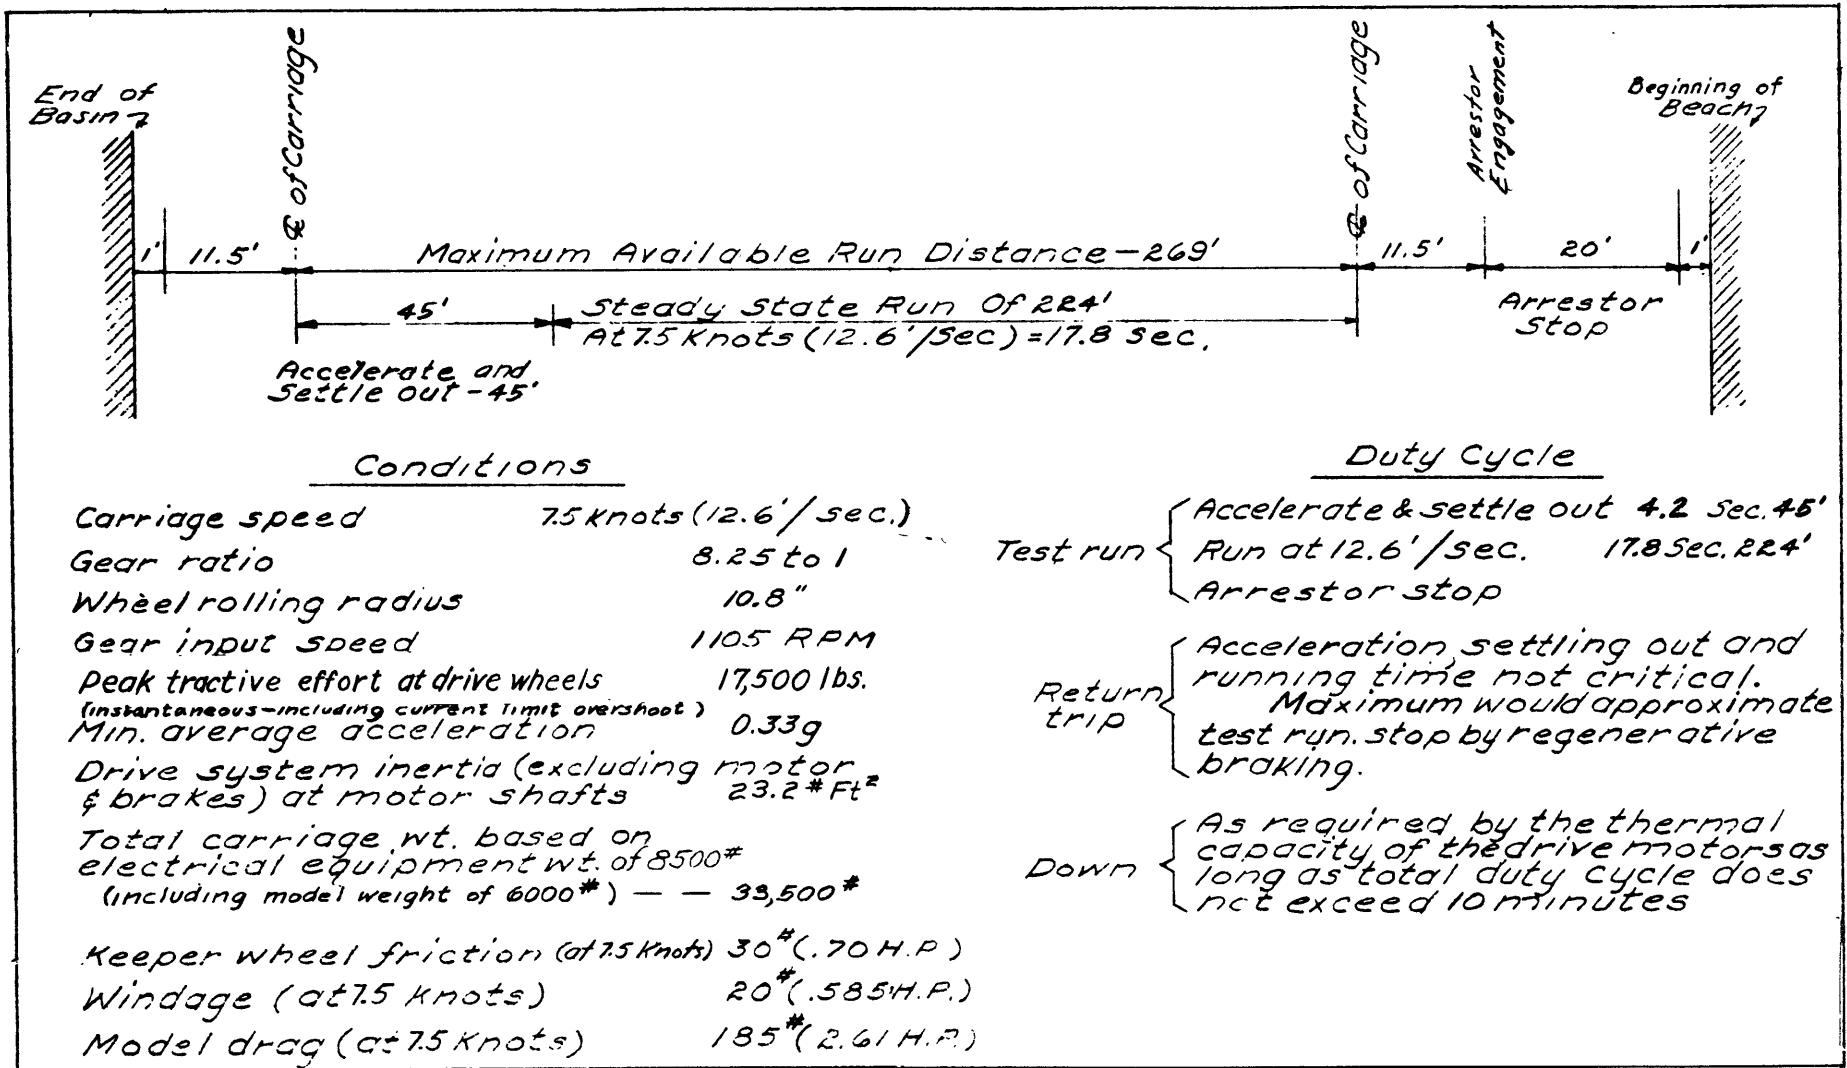 End of
Basin
℄ of Carriage
℄ of Carriage
Arrestor
Engagement
Beginning of
Beach
1' 11.5' Maximum Available Run Distance-269' 11.5' 20' 1'
45' Steady State Run Of 224'
At 7.5 Knots (12.6'/Sec) = 17.8 Sec.
Arrestor
Stop
Accelerate and
Settle out - 45'
Conditions
Carriage speed 7.5 Knots (12.6'/sec.)
Gear ratio 8.25 to 1
Wheel rolling radius 10.8"
Gear input speed 1105 RPM
Peak tractive effort at drive wheels 17,500 lbs.
(instantaneous-including current limit overshoot)
Min. average acceleration 0.33g
Drive system inertia (excluding motor
& brakes) at motor shafts 23.2 # Ft²
Total carriage wt. based on
electrical equipment wt. of 8500#
(including model weight of 6000#) — — 33,500#
Keeper wheel friction (at 7.5 Knots) 30# (.70 H.P)
Windage (at 7.5 Knots) 20# (.585 H.P.)
Model drag (at 7.5 Knots) 185# (2.61 H.P.)
Duty Cycle
Test run
Accelerate & settle out 4.2 Sec. 45'
Run at 12.6'/sec. 17.8 Sec. 224'
Arrestor stop
Return
trip
Acceleration, settling out and
running time not critical.
Maximum would approximate
test run. stop by regenerative
braking.
Down
As required by the thermal
capacity of the drive motors as
long as total duty cycle does
not exceed 10 minutes